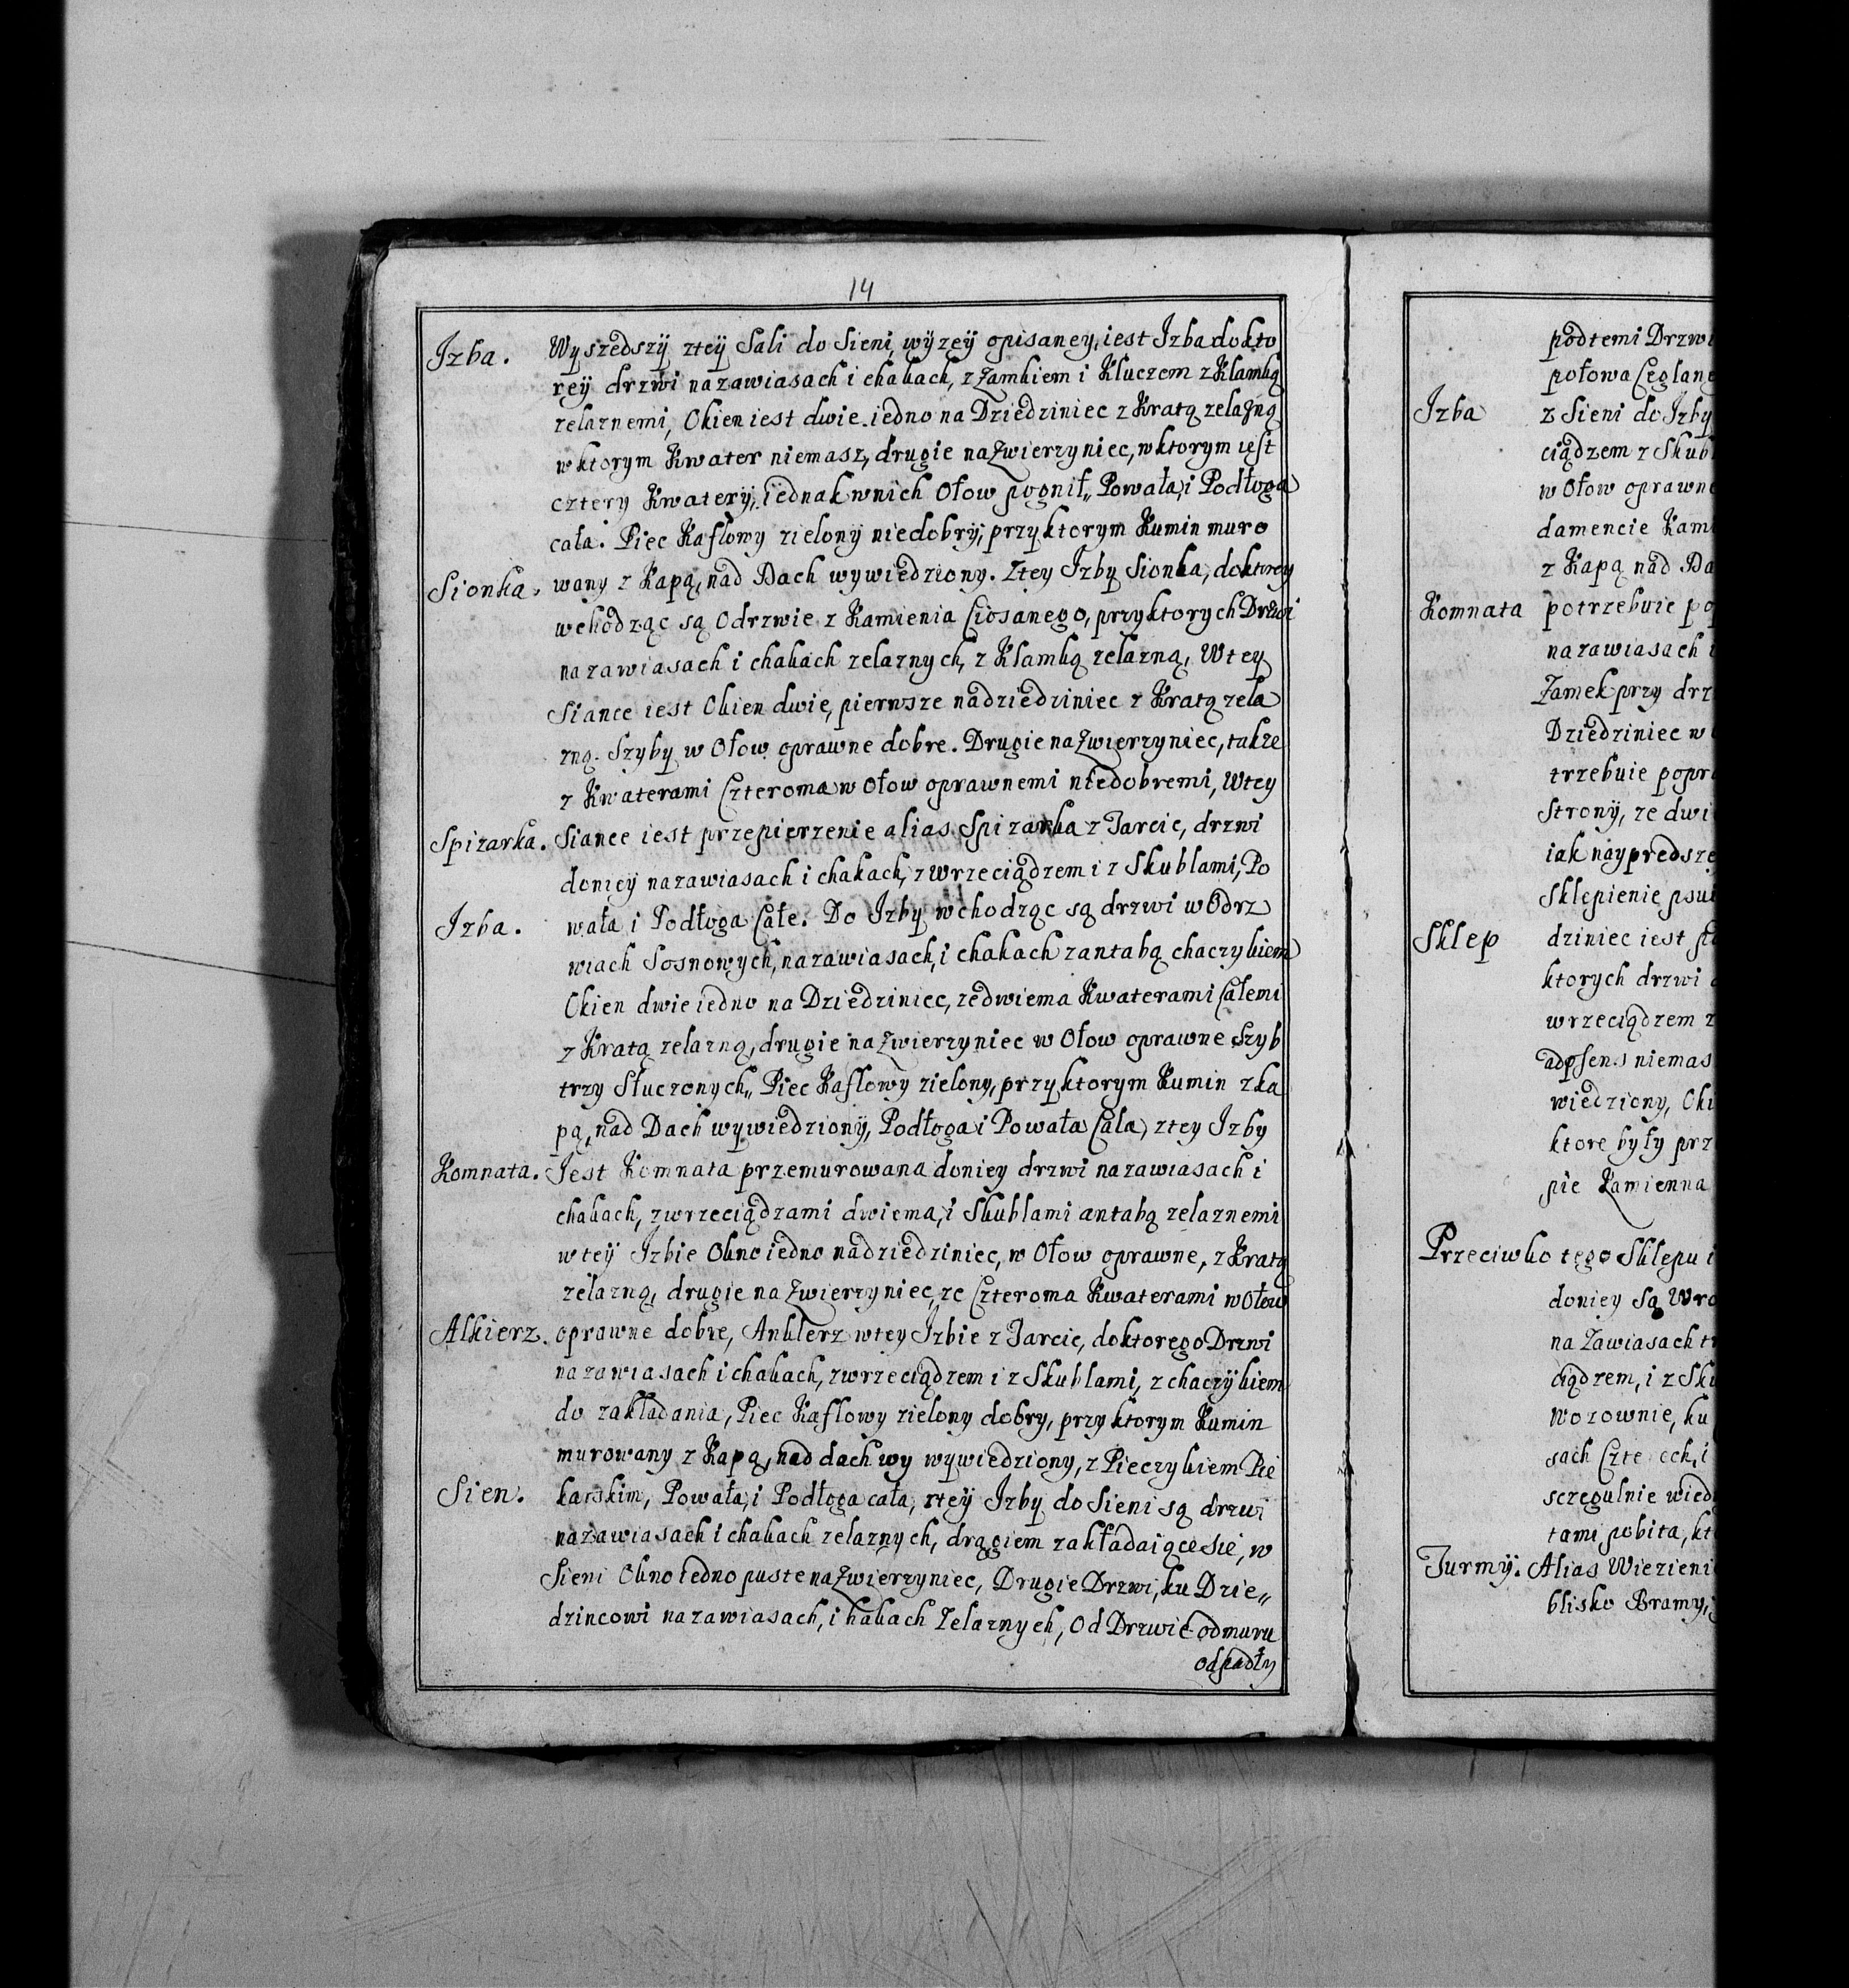 14
Izba. Wyszedszÿ zteÿ Sali do Sieni, wÿzeÿ opisaney, iest Izba dokto
reÿ drzwi nazawiasach i chakach, z Zamkiem i Kluczem z Klamką
zelaznemi, Okien iest dwie. iedno na Dziedziniec z Kratą zelazną
wktorym Kwater niemasz, drugie na Zwierzyniec, wktorym iest
cztery Kwaterÿ, iednak wnich Ołow pognił,, Powała, i Podłoga
cała. Piec Kaflowy zielony niedobrÿ, przyktorym Kumin muro
Sionka. wany z Kapą, nad Dach wywiedziony. Ztey Izby Sionka, doktorey
wchodząc są Odrzwie z Kamienia Ciosanego, przyktorych Drzwi
nazawiasach i chakach zelaznych, z Klamką zelazną, Wtey
Siance iest Okien dwie, pierwsze nadziedziniec z Kratą zela
zną. Szyby w Ołow oprawne dobre. Drugie na Zwierzyniec, takze
z Kwaterami Czteroma w Ołow oprawnemi niedobremi, Wtey
Spizarka. Siance iest przepierzenie alias Spizarka z Tarcic, drzwi
doniey nazawiasach i chakach, z wrzeciądzem i z Skublami, Po
Izba. wała i Podłoga Całe. Do Izby wchodząc są drzwi w Odrz
wiach Sosnowych, nazawiasach, i chakach zantabą chaczykiem
Okien dwie iedno na Dziedziniec, zedwiema Kwaterami Całemi
z Kratą zelazną, drugie na Zwierzyniec w Ołow oprawne Szyb
trzy Słuczonych,, Piec Kaflowy zielony, przyktorym Kumin zka
pą, nad Dach wywiedzionÿ, Podłoga i Powała Cała, ztey Izby
Komnata. Jest Komnata przemurowana doniey drzwi nazawiasach i
chakach, zwrzeciądzami dwiema, i Skublami antabą zelaznemi
wteÿ Izbie Okno iedno nadziedziniec, w Ołow oprawne, z Kratą
zelazną, drugie na Zwierzyniec, ze Czteroma Kwaterami w Ołow
Alkierz. oprawne dobre, Anklerz wtey Izbie z Tarcic, doktorego Drzwi
nazawiasach i chakach, zwrzeciądzem i z Skublami, z chaczÿkiem
do zakładania, Piec Kaflowy zielony dobry, przyktorym Kumin
murowany z Kapą, nad dach wy wywiedziony, z Pieczykiem Pie
Sien. karskim, Powała, i Podłoga cała, zteÿ Izby do Sieni są drzwi
nazawiasach i chakach zelaznych, drągiem zakładaiącesie, w
Sieni Okno iedno puste na Zwierzyniec, Drugie Drzwi, ku Dzie,,
dzincowi nazawiasach, i hakach Zelaznych, Od Drzwi odmuru
odpadły
podtemi Drzwi
połowa Ceglan
Izba z Sieni do Izby
ciądzem z Skub
w Ołow oprawn
damencie Kam
z Kapą nad Da
Komnata potrzebuie po
nazawiasach
Zamek przy drz
Dziedziniec w
trzebuie popr
Stronÿ, ze dwi
iak naypredsze
Sklepienie psu
Sklep dziniec iest
ktorych drzwi
wrzeciądzem z
adpsens niemas
wiedziony, Oki
ktore były prz
pie Kamienna
Przeciwko tego Sklepu i
doniey Są Wro
na Zawiasach
ciądzem, i z Sku
Wozownie, ku
sach Czte ech, i
sczegulnie wied
tami pobita, kt
Turmÿ. Alias Wiezieni
blisko Bramy,